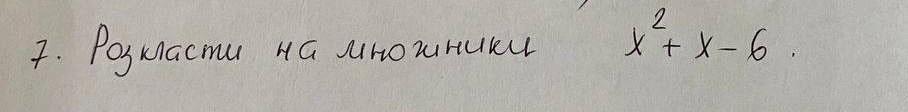 7. Розкласти на множники x² + x - 6.